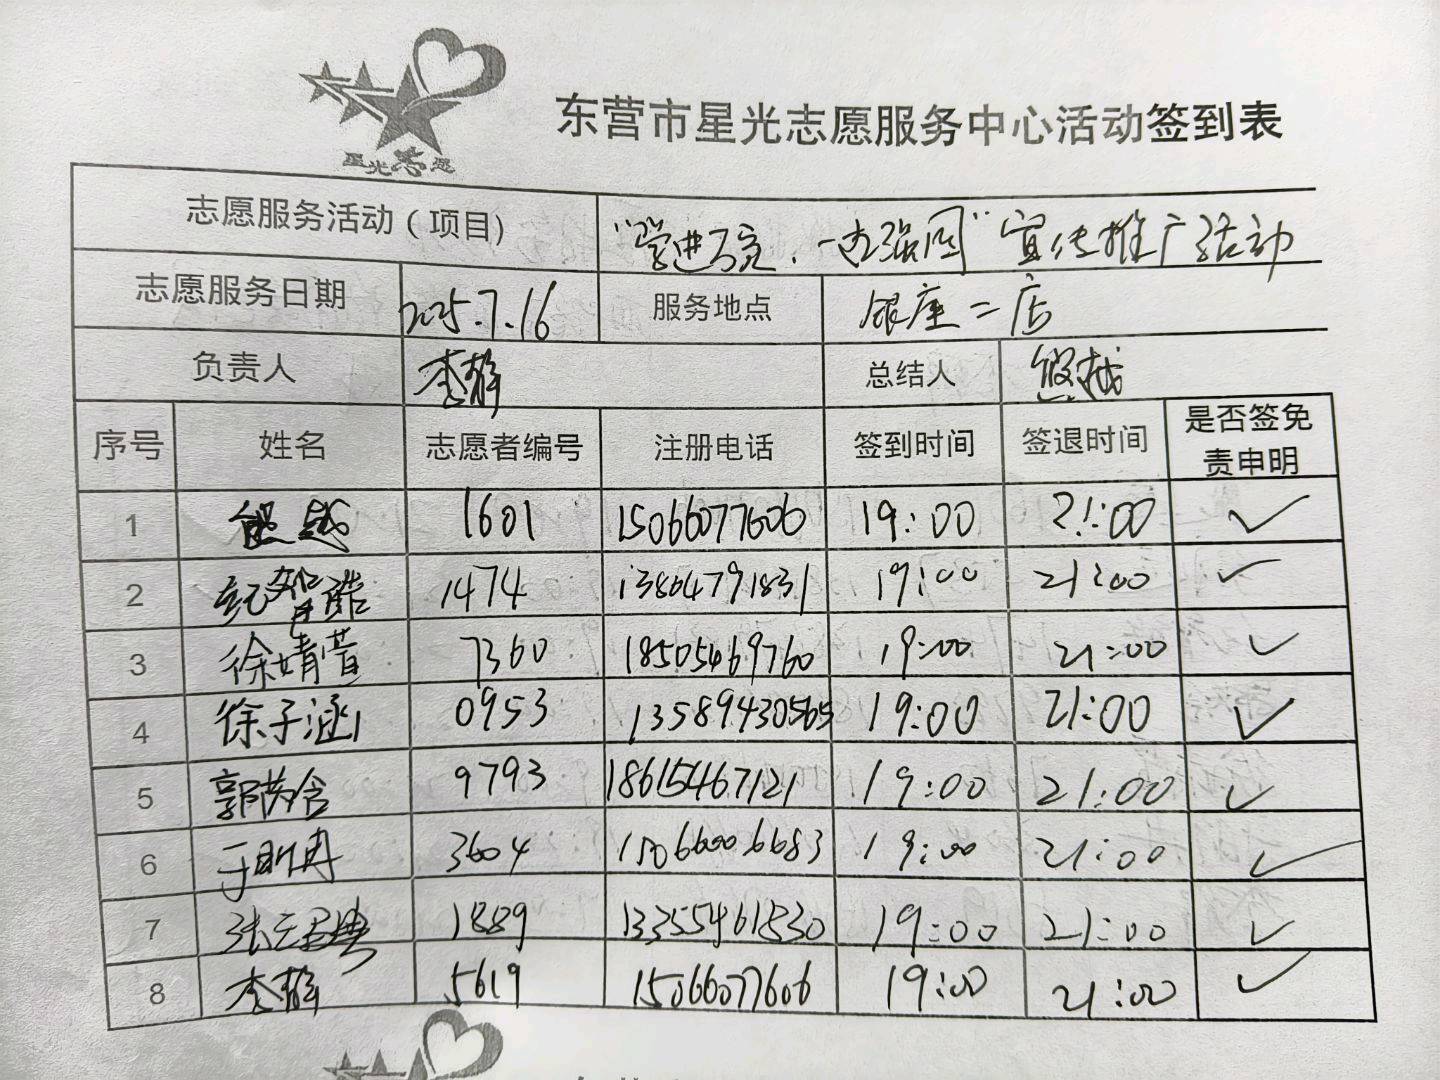 星光志愿
东营市星光志愿服务中心活动签到表
志愿服务活动（项目) “学进万家、一边强国”宣传推广活动
志愿服务日期 2025.7.16 服务地点 银座二店
负责人 李静 总结人
序号 姓名 志愿者编号 注册电话 签到时间 签退时间 是否签免责申明
1 1601 15066077606 19:00 21:00 ✓
2 1474 13864791831 19:00 21:00 ✓
3 徐婧萱 7360 18505469760 19:00 21:00 ✓
4 徐子涵 0953 13589430565 19:00 21:00 ✓
5 郭芮含 9793 18615467121 19:00 21:00 ✓
6 于明冉 3604 15066006683 19:00 21:00 ✓
7 1889 13355461530 19:00 21:00 ✓
8 李静 5619 15066077606 19:00 21:00 ✓